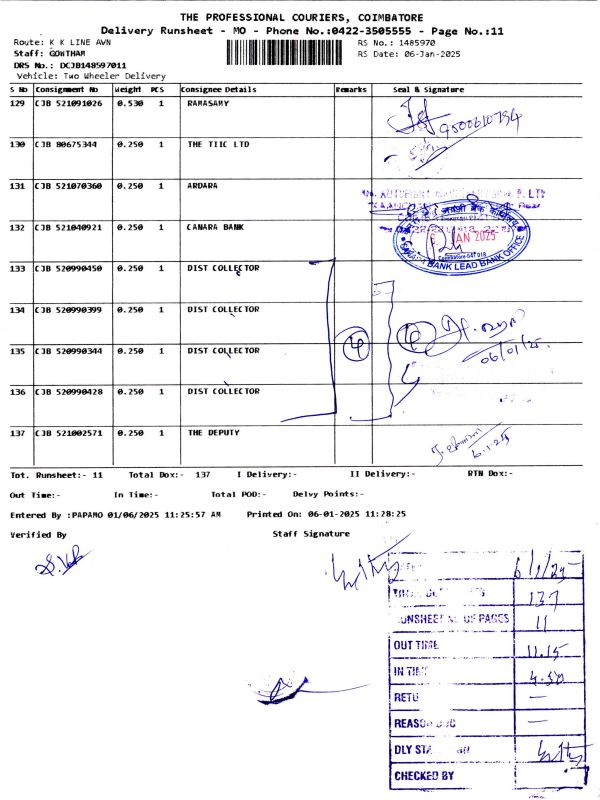 THE PROFESSIONAL COURIERS, COIMBATORE
Delivery Runsheet - MO - Phone No.:0422-3505555 - Page No.:11
Route: K K LINE AVN
RS No.: 1485970
Staff: GOWTHAM
RS Date: 06-Jan-2025
DRS No.: DCJB148597011
Vehicle: Two Wheeler Delivery
S No Consignment No Weight PCS Consignee Details Remarks Seal & Signature
129 CJB 521091026 0.530 1 RAMASAMY
9500610794
130 CJB 80675344 0.250 1 THE TIIC LTD
131 CJB 521070360 0.250 1 ARDARA
P. LTD
132 CJB 521040921 0.250 1 CANARA BANK
6 JAN 2025
Coimbatore-641 018
BANK LEAD BANK OFFICE
133 CJB 520990450 0.250 1 DIST COLLECTOR
134 CJB 520990399 0.250 1 DIST COLLECTOR
4 4
06/01/25
135 CJB 520990344 0.250 1 DIST COLLECTOR
136 CJB 520990428 0.250 1 DIST COLLECTOR
137 CJB 521002571 0.250 1 THE DEPUTY
6.1.25
Tot. Runsheet:- 11 Total Dox:- 137 I Delivery:- II Delivery:- RTN Dox:-
Out Time:- In Time:- Total POD:- Delvy Points:-
Entered By :PAPAMO 01/06/2025 11:25:57 AM Printed On: 06-01-2025 11:28:25
Verified By Staff Signature
6/1/25
137
RUNSHEET NO OF PAGES 11
OUT TIME 11.15
IN TIME 4.50
RETU —
REASON DOC —
DLY STA
CHECKED BY